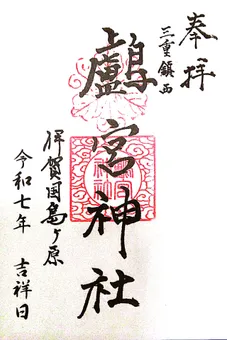 奉拝
三重鎮西
鸕宮神社
伊賀国島ヶ原
令和七年 吉祥日